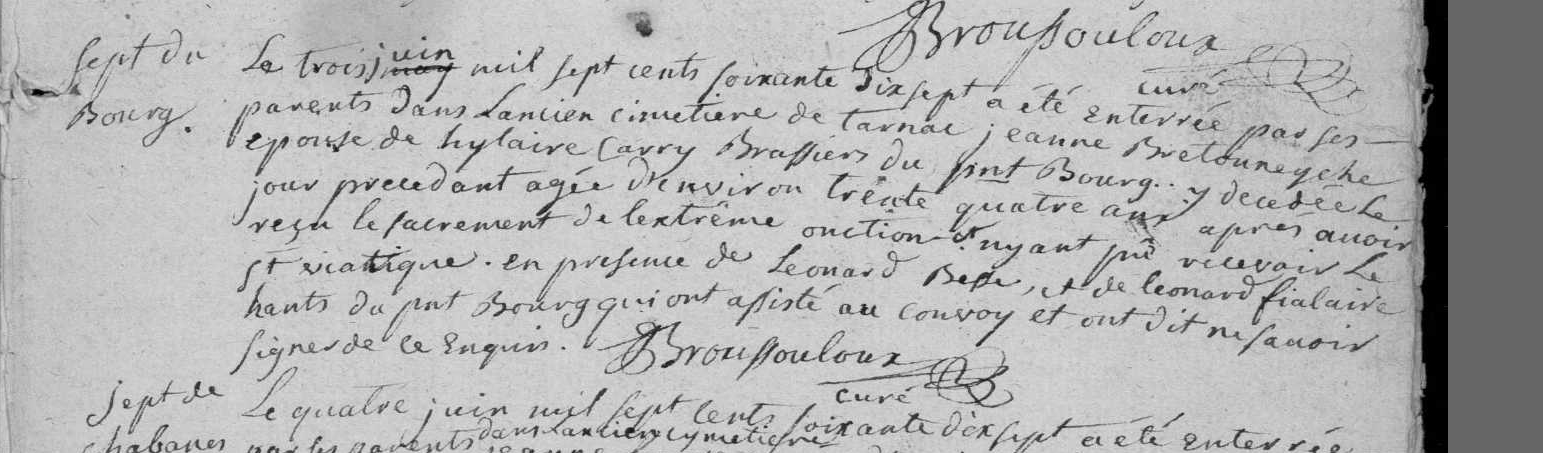 Broussouloux
curé
Sept du
Bourg.
Le trois juin may mil sept cents soixante dixsept a été Enterrée par ses
parents dans Lancien cimetiere de tarnac jeanne Bretouneyche
epouse de hylaire Carry Brassiers du pnt Bourg.. y decedée Le
jour precedant agée d'environ trente quatre ans après avoir
reçu le sacrement de lextrême onction et nyant pû recevoir Le
st viatique. en presence de Leonard Besse, et de leonard fialaire
hants du pnt Bourg qui ont assisté au convoy et ont dit ne savoir
signer de ce Enquis. Broussouloux
curé
Sept de
chabanes
Le quatre juin mil sept Cents soixante dix sept a été Enterrée
par ses parents dans Lancien cymetiere jeanne